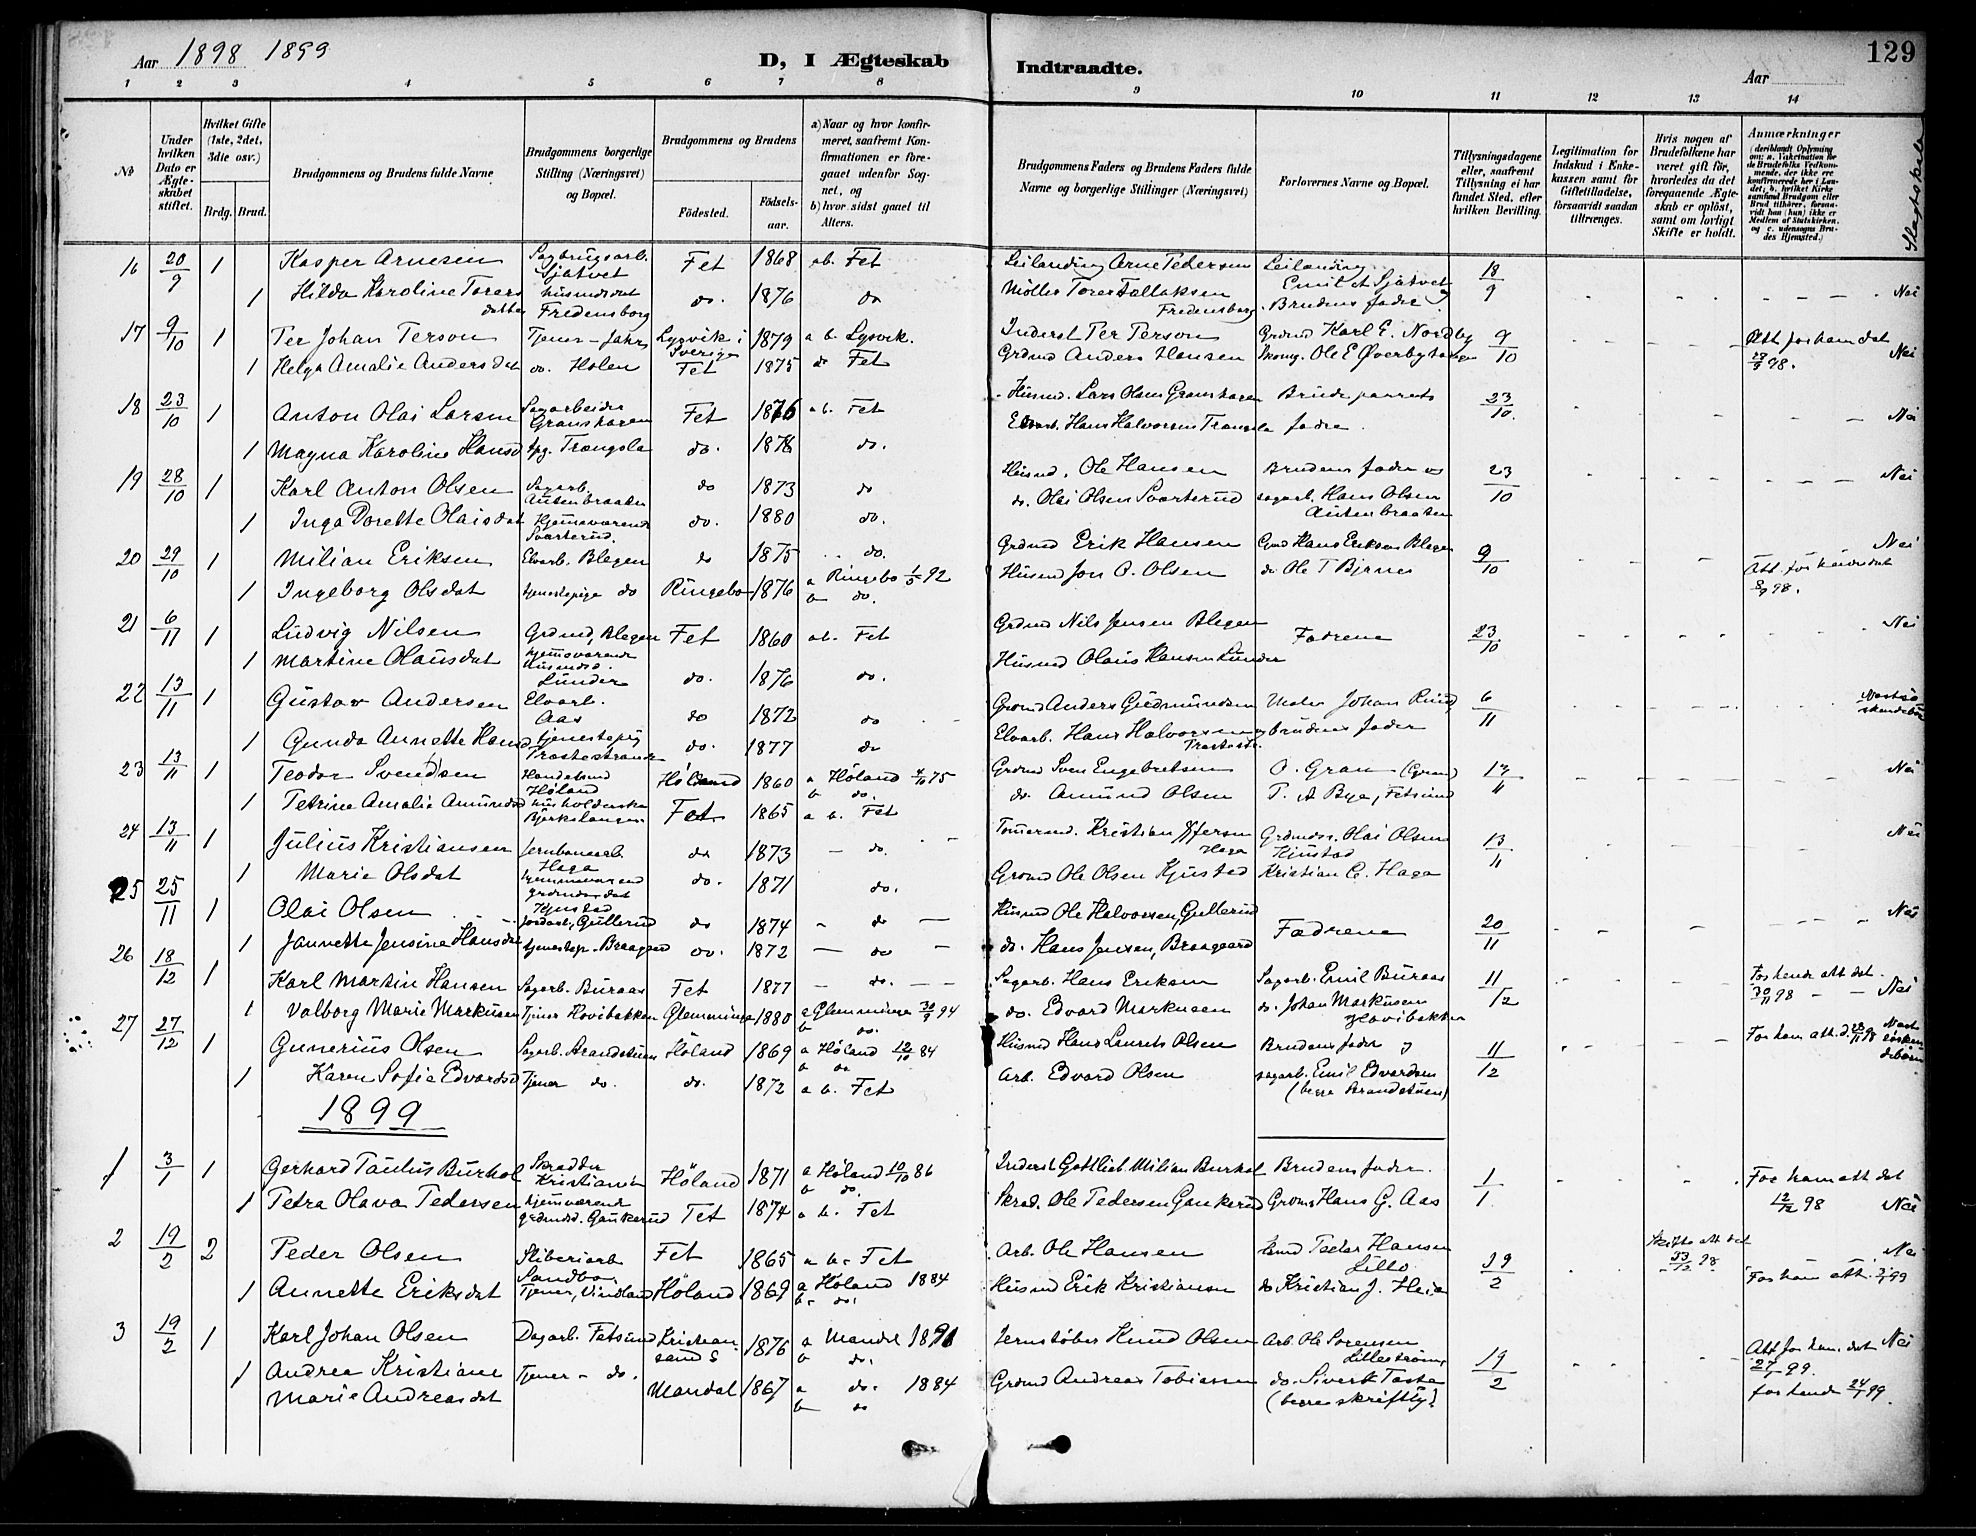 129
Aar 1898 1899
D, I Ægteskab Indtraadte.
Aar
1 2 3 4 5 6 7 8 9 10 11 12 13 14
No
Under hvilken Dato er Ægteskabet stiftet.
Hvilket Gifte (1ste, 2det, 3die osv.)
Brdg. Brud.
Brudgommens og Brudens fulde Navne
Brudgommens borgerlige Stilling (Næringsvei) og Bopæl.
Brudgommens og Brudens
Fødested. Fødselsaar.
a) Naar og hvor konfirmeret, saafremt Konfirmationen er foregaaet udenfor Sognet, og
b) hvor sidst gaaet til Alters.
Brudgommens Faders og Brudens Faders fulde Navne og borgerlige Stillinger (Næringsvei)
Forlovernes Navne og Bopæl.
Tillysningsdagene eller, saafremt Tillysning ei har fundet Sted, efter hvilken Bevilling.
Legitimation for Indskud i Enkekassen samt for Giftetilladelse, forsaavidt saadan tiltrænges.
Hvis nogen af Brudefolkene har været gift før, hvorledes da det foregaaende Ægteskab er opløst, samt om lovligt Skifte er holdt.
Anmærkninger (deriblandt Oplysning om: a. Vakcination for de Brudefolks Vedkommende, der ikke ere konfirmerede her i Landet; b. hvilket Kirkesamfund Brudgom eller Brud tilhører, forsaavidt han (hun) ikke er Medlem af Statskirken, og c. udensogns Brudes Hjemsted.)
16 20/9 1 Kasper Arnesen Sagbrugsarb. Sjatvet Fet 1868 ab. Fet Leilænding Arne Pedersen Leilænding Emil A Sjatvet og 18/9
1 Hilda Karoline Toresdatter husmdsdat Fredensborg do. 1876 do Møller Tores Tollaksen Fredensborg Brudens fader Nei
17 9/10 1 Per Johan Person Tjener - Jahr Lysvik i Sverige 1879 a b. Lysvik. Inderst Per Person Grdmd Karl E. Nordby 9/10 Att for ham dat
1 Helga Amalie Andersdat do. Holen Fet 1875 do Fet Grdmd Anders Hansen Ole E Øverbyhagen 98. Nei
18 23/10 1 Anton Olai Larsen Sagarbeider Granshagen Fet 1876 ab. Fet Husmd. Lars Olsen Granshagen Brudeparrets 23/10
1 Magna Karoline Hansd Trangsla do. 1878 do. Elvarb. Hans Halvorsen Trangsla fædre. Nei
19 28/10 1 Karl Anton Olsen Sagarb. Autenbraaten do 1873 do Husmd. Ole Hansen Brudens fader og 23/10 Nei
1 Inga Dorette Olaisdat Hjemmeværende Svarterud. do. 1880 do. do. Olai Olsen Svarterud sagarb. Hans Olsen Autenbraaten
20 29/10 1 Milian Eriksen Elvarb. Blegen do 1875 do. Grdmd Erik Hansen Grmd Hans Eriksen Blegen 9/10 Nei
1 Ingeborg Olsdat tjenestepige do Ringebo 1876 a Ringebo 92 b do. Husmd Jon O. Olsen do Ole T Bjrnes Att. for hende dat 98.
21 6/11 1 Ludvig Nilsen Grdmd, Blegen Fet 1860 ab. Fet Grdmd Nils Jensen Blegen Fædrene 23/10 Nei
1 Martine Olausdat hjemmeværende Husmdsd. Lunder do. 1876 do. Husmd Olaus Hansen Lunder
22 13/11 1 Gustav Andersen Elvarb. Aas do 1872 do Grdmd Anders Gudmundsen Maler Johan Ruud 6/11
1 Gunda Annette Hansd tjenestepig do. 1877 do Elvarb. Hans Halvorsen og brudens fader
23 13/11 1 Teodor Svendsen Handelsmd Høland Høland 1860 a Høland 75 b do. Grdmd Sven Engebretsen O. Gran (Grmd) 13/11 Nei
1 Petrine Amalie Amundsd husholderske Bjørkelangen Fet 1865 a b. Fet do. Amund Olsen P. A Bye, Fetsund
24 13/11 1 Julius Kristiansen Jernbanearb. Haga do 1873 do. Tømermd. Kristian Haga Grdmds. Olai Olsen Kjustad 13/11 Nei
1 Marie Olsdat hjemmeværend grdmdsdat Kjustad do. 1871 do. Grdmd Ole Olsen Kjustad Kristian C. Haga
25 25/11 1 Olai Olsen Jordarb, Gullerud do 1874 do Husmd Ole Halvorsen, Gullerud Fædrene 20/11 Nei
1 Jannette Jensine Hansdat tjenestep. Braagaard do. 1872 do do. Hans Jensen, Braagaard
26 18/12 1 Karl Martin Hansen Sagarb. Buraas Fet 1877 do. Sagarb. Hans Eriksen Sagarb. Emil Buraas 11/12 For hende att dat.
1 Valborg Marie Markusen Tjener Hovibakken Glemminge 1880 a Glemminge 94 b do. do. Edvard Markusen do. Johan Markusen Hovibakken 30/11 98 Nei
27 27/12 1 Gunerius Olsen Sagarb. Brandstuen Høland 1869 a Høland 12/10 84 b do Husmd Hans Laurits Olsen Brudens fader og 11/12 For ham att. d.
1 Karen Sofie Edvardsd Tjener do. do. 1872 a b. Fet Arb. Edvard Olsen sagarb. Emil Edvardsen (begge Brandstuen)
1899
1 3/1 1 Gerhard Paulus Burhol Skrædder Kristiania Høland 1871 a Høland 10/10 86 b do. Inderst Gottlieb Milian Burhol Brudens fader. 1/1 For ham att dat
1 Petra Olava Pedersen hjemværende grdmdsd. Gaukerud Fet 1874 a b. Fet Skræd. Ole Pedersen Gaukerud Grdmd Hans G. Aas 12/12 98 Nei
2 19/2 2 Peder Olsen Sliberiarb Sandbo Fet 1865 a b. Fet Arb. Ole Hansen Peder Hansen Lillo 19/2 Skifte att dat 98 Nei
1 Annette Eriksdat Tjener, Vindland Høland 1869 a Høland 1884 b. do. Husmd Erik Kristiansen do Kristian J. Heia For ham att. 99
3 19/2 1 Karl Johan Olsen Dagarb. Fetsund Kristiansand S 1876 a Mandal 1891 b do. Jernstøber Knud Olsen Arb. Ole Sørensen Lillestrøm 19/2 Att for ham dat 27/1 99. Nei
1 Andrea Kristiane Marie Andreasdat Tjener - do. Mandal 1867 a do. 1884 b do Grdmd Andreas Tobiassen do. Sivert (begge skriftlig) for hende 24/1 99.